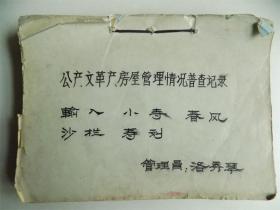 公产、文革产、房屋管理情况普查记录
輸入 小寺 春风
沙栏 寿利
管理員:洛秀琴